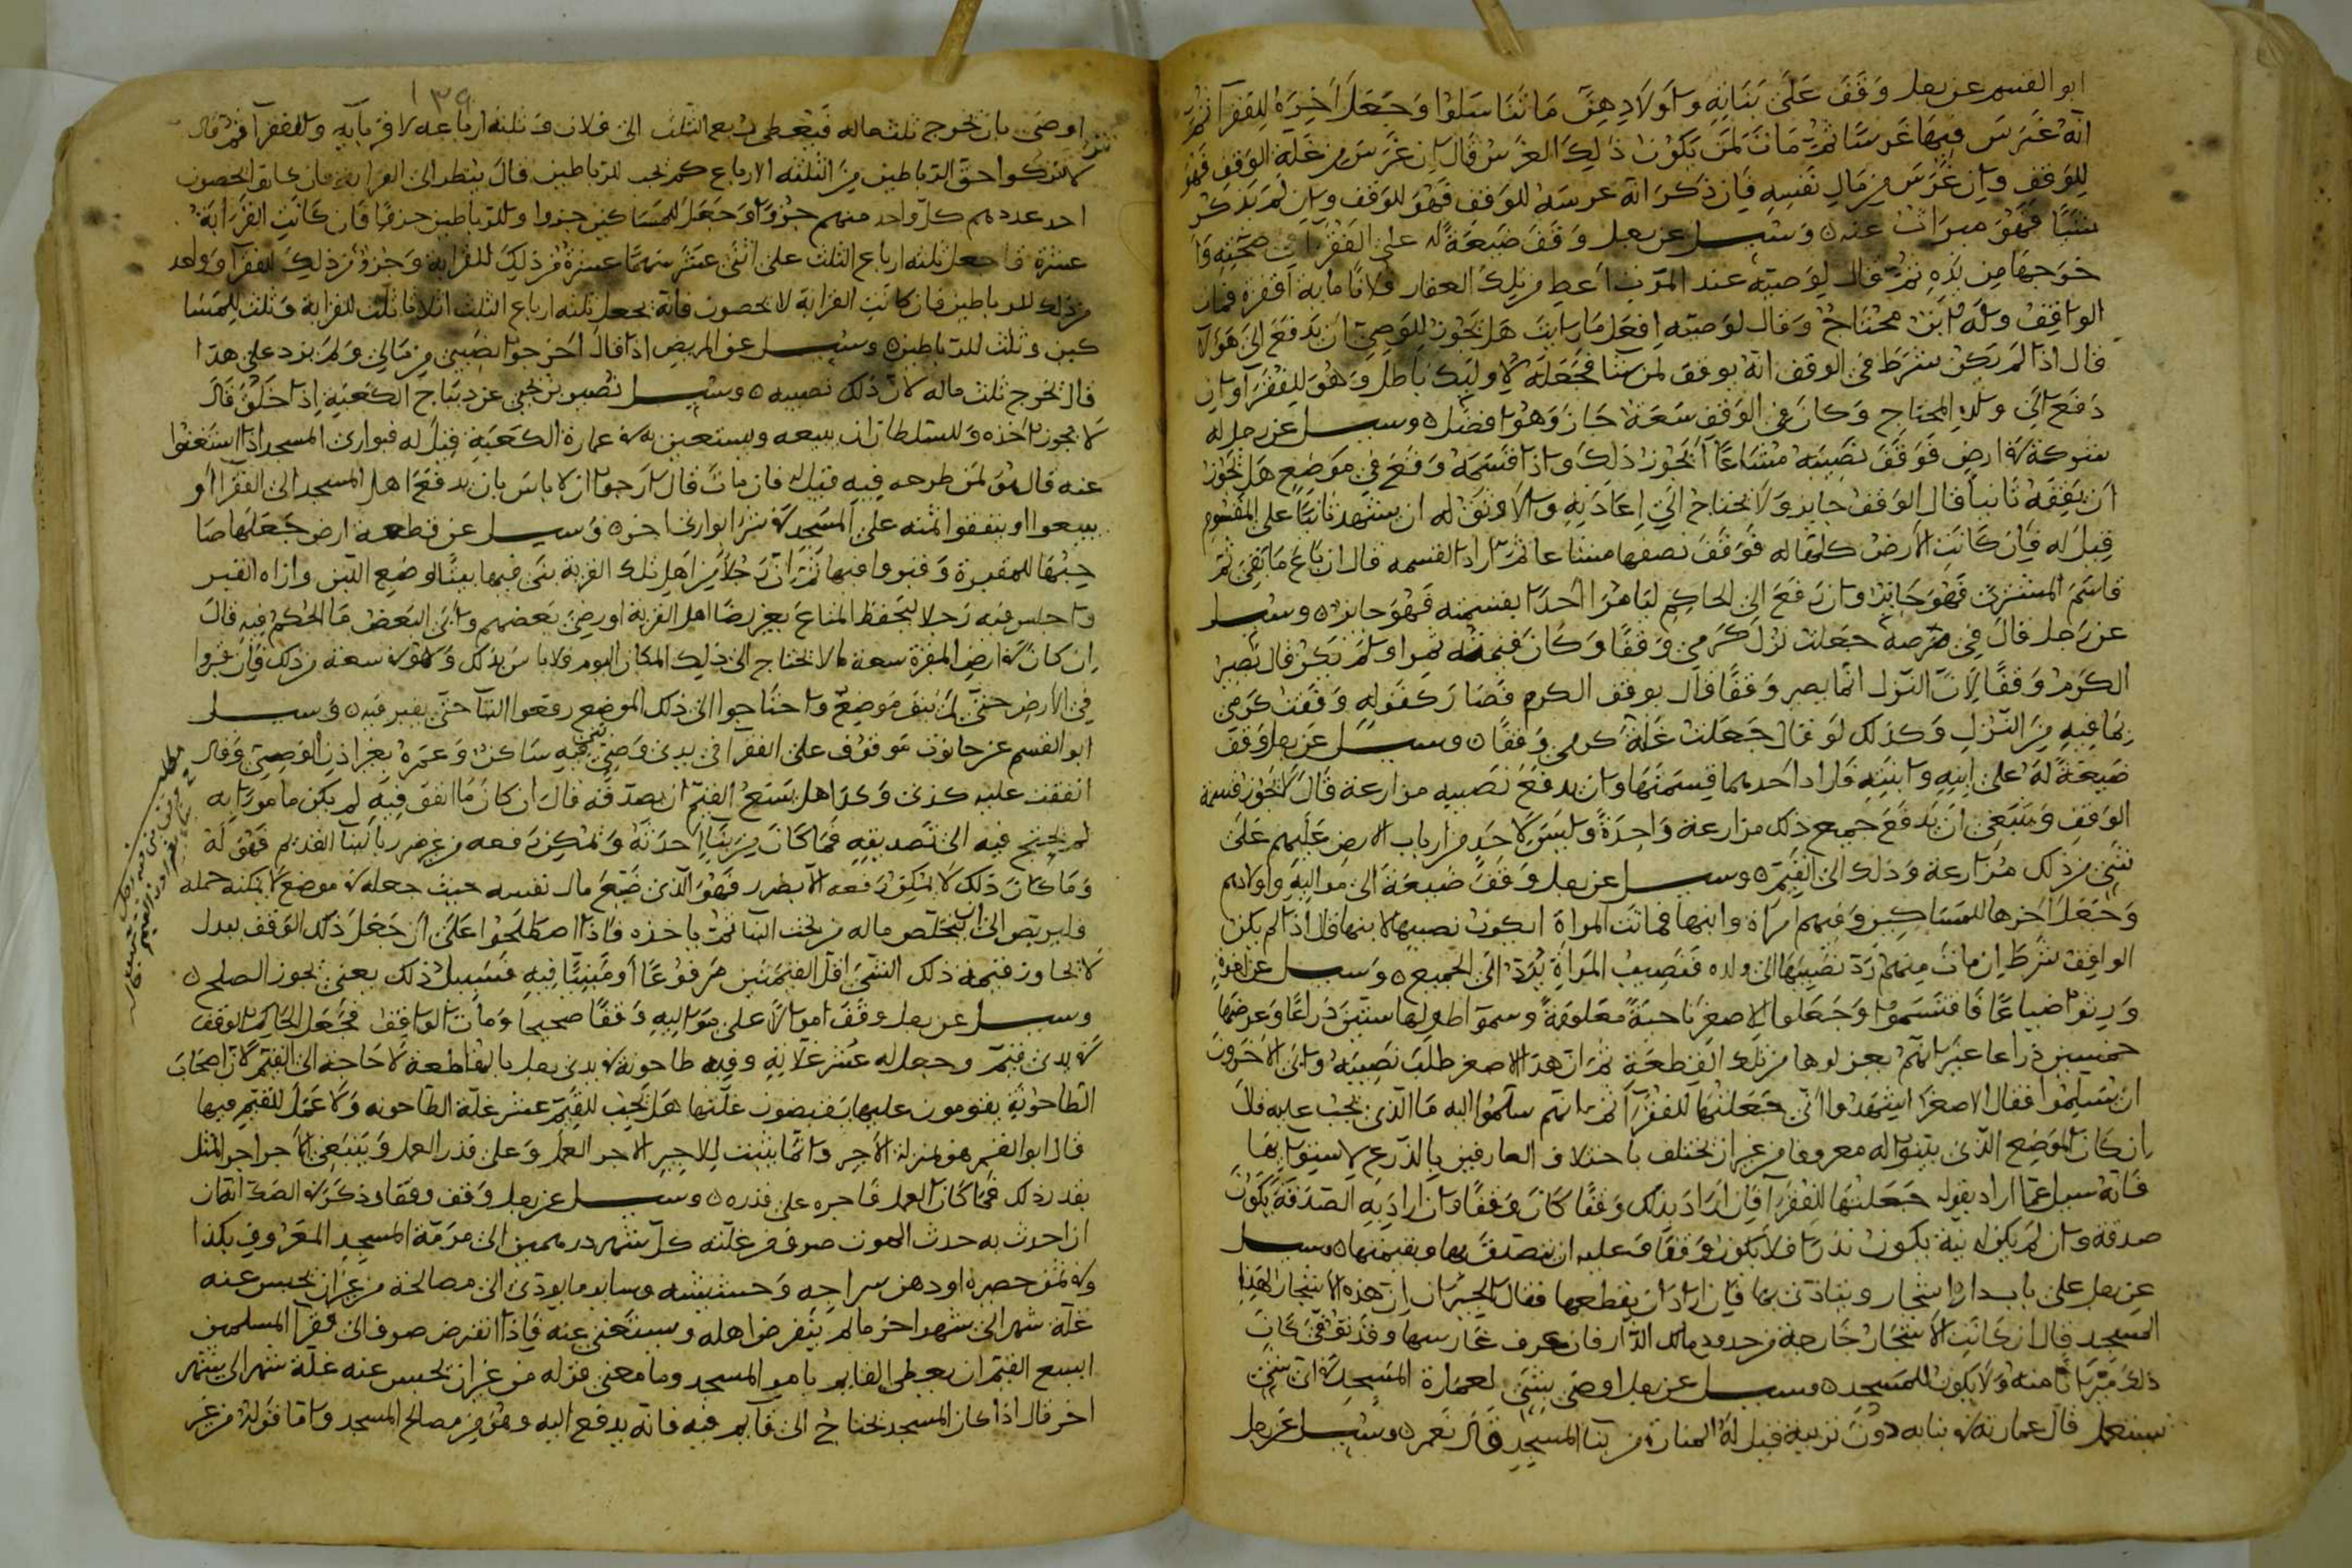 ابو القسم عن رجل وقف على بناته واولادهن ما تناسلوا وجعل اخره للفقرا ثم
انه غرس فيها غرسا ثم مات لمن يكون ذلك الغرس قال ان غرس من غلة الوقف فهو
للوقف وان غرس من مال نفسه فان ذكر انه غرسه للوقف فهو للوقف وان لم يذكر
شيا فهو ميراث عنه وسيل عن رجل وقف ضيعة له على الفقرا في صحته و
خرجها من يده ثم قال لوصيه عند الموت اعط من تلك العقار فلانا مايه فمات
الواقف وله ابن محتاج وقال لوصيه افعل ما رايت هل يجوز للوصي ان يدفع الى هولا
قال اذا لم يكن شرط في الوقف انه يوقف لمن شا فجعله لاوليك باطل وهو للفقرا وان
دفع الى ولده المحتاج وكان في الوقف سعة جاز وهو افضل وسيل عن رجل له
شركة في ارض فوقف نصيبه مشاعا ايجوز ذلك واذا اقتسمه وقع في موضع هل يجوز
ان يقفه ثانيا قال الوقف جايز ولا يحتاج الى اعادته والاوثق له ان يشهد ثانيا على المقسوم
قيل له فان كانت الارض كلها له فوقف نصفها مشاعا ثم اراد القسمة قال ان باع ما بقي ثم
قاسم المشتري فهو جايز وان رفع الى الحاكم ليامر احدا بقسمته فهو جايز وسيل
عن رجل قال في مرضه جعلت نزل كرمي وقفا وكان فيه ثمر او لم يكن قال يصير
الكرم وقفا لان النزل انما يصير وقفا قال بوقف الكرم فصار كقوله وقفت كرمي
بما فيه من النزل وكذلك لو قال جعلت غلة كرمي وقفا وسيل عن رجل وقف
ضيعة له على ابنه وابنته فاراد احدهما قسمتها وان يدفع نصيبه مزارعة قال لا يجوز قسمة
الوقف وينبغي ان يدفع جميع ذلك مزارعة واحدة وليس لاحد من ارباب الارض عليهم على
شي من ذلك مزارعة وذلك الى القيم وسيل عن رجل وقف ضيعة الى مواليه واولادهم
وجعل اخرها للمساكين وفيهم امراة وابنها فماتت المراة ايكون نصيبها لابنها قال اذا لم يكن
الواقف شرط ان مات منهم رد نصيبها الى ولده فنصيب المراة يرد الى الجميع وسيل عن اخوة
ورثوا ضياعا فاقتسموا وجعلوا للاصغر ناحية معلومة وسموا طولها ستين ذراعا وعرضها
خمسين ذراعا غير انهم يعزلوها من تلك القطعة ثم ان هذا الاصغر طلب نصيبه وابى الاخرون
ان يسلموا فقال الاصغر اشهدوا اني جعلتها للفقرا ثم انهم سلموا اليه ما الذي يجب عليه قال
ان كان الموضع الذي بينوا له معروفا من غير ان يختلف باختلاف العارفين بالذرع
فانه سيل عما اراد بقوله جعلتها للفقرا فان اراد بذلك وقفا كان وقفا وان اراد به الصدقة يكون
صدقة وان لم يكن له نية يكون نذرا فلا يكون وقفا وعليه ان يتصدق بها وبقيمتها وسيل
عن رجل على باب داره اشجار ويتاذى بها فان اراد ان يقطعها فقال الجيران ان هذه الاشجار لهذا
المسجد قال ان كانت الاشجار خارجة من حدود ملك الدار فان عرف غارسها وقد توفي كانت
ذلك ميراثا منه ولا يكون للمسجد وسيل عن رجل اوصى بشي لعمارة المسجد في اي شي
يستعمل قال عمارته في بنايه دون تزيينه قيل له المنارة من بنا المسجد قال نعم وسيل عن رجل
١٣٩
اوصى بان يخرج ثلث ماله فيعطى ربع الثلث الى فلان وثلثة ارباعه لاقربايه وللفقرا ثم قال
لا تتركوا حق الرباطين من الثلثة الارباع كم يجب للرباطين قال ينظر الى القرابة فان كانوا يحصون
احد عددهم كل واحد منهم جزوا وجعل للمساكين جزوا وللرباطين جزا فان كانت القرابة
عشرة فاجعل ثلثة ارباع الثلث على اثنى عشر سهما عشرة من ذلك للقرابة وجزو من ذلك للفقرا وواحد
من ذلك للرباطين فان كانت القرابة لا يحصون فانه يجعل ثلثة ارباع الثلث اثلاثا ثلث للقرابة وثلث للمسا
كين وثلث للرباطين وسيل عن المريض اذا قال اخرجوا نصيبي من مالي ولم يزد على هذا
قال يخرج ثلث ماله لان ذلك نصيبه وسيل نصير بن يحيى عن ديباج الكعبة اذا خلق قال
لا يجوز اخذه وللسلطان ان يبيعه ويستعين به في عمارة الكعبة قيل له فبواري المسجد اذا استغنوا
عنه قال هو لمن طرحه فيه قيل له فان مات قال ارجوا ان لا باس بان يدفع اهل المسجد الى الفقرا او
يبيعوا او ينفقوا ثمنه على المسجد في شرا بواري اخر وسيل عن قطعة ارض جعلها صا
حبها للمقبرة وقبروا فيها ثم ان رجلا من اهل تلك القرية بنى فيها بيتا لوضع اللبن واداة القبر
واجلس فيه رجلا ليحفظ المتاع بغير رضا اهل القرية او رضي بعضهم وابى البعض ما الحكم فيه قال
ان كان في ارض المقبرة سعة لا يحتاج الى ذلك المكان اليوم فلا باس بذلك وهو في سعة من ذلك فان قبروا
في الارض حتى لم يبق موضع واحتاجوا الى ذلك الموضع رفعوا البنا حتى يقبر فيه وسيل
ابو القسم عن حانوت موقوف على الفقرا في يدي وصي فيه ساكن وعمره بغير اذن الوصي وقال
انفقت عليه كذى وكذا هل يسع القيم ان يصدقه قال ان كان ما انفق فيه لم يكن مامورا به
لم يحتج فيه الى تصديقه فما كان من بنا احدثه ويمكن رفعه من غير ضرر بالبنا القديم فهو له
وما كان ذلك لا يمكن رفعه الا بضرر فهو الذي ضيع مال نفسه حيث جعله في موضع لا يمكنه حمله
فليربص الى ان يتخلص ماله من تحت البنا ثم ياخذه فاذا اصطلحوا على ان جعل ذلك الوقف ببدل
لا يجاوز قيمة ذلك الشي اقل القيمتين مرفوعا او مبنيا فيه فسبيل ذلك يعني يجوز الصلح
وسيل عن رجل وقف اموالا على مواليه وقفا صحيحا ومات الواقف فجعل الحاكم الوقف
في يدي قيم وجعل له عشر غلاته وفيه طاحونة في يدي رجل بالمقاطعة لا حاجة الى القيم لان اصحاب
الطاحونة يقومون عليها يقبضون غلتها هل يجب للقيم عشر غلة الطاحونه ولا عمل للقيم فيها
قال ابو القسم هو بمنزلة الاجير وانما يثبت للاجير الاجر العمل وعلى قدر العمل وينبغي الاجر اجر المثل
بقدر ذلك فما كان العمل فاجره على قدره وسيل عن رجل وقف وقفا وذكر في الصك انه ان
ان احدث به حدث الموت صرف من غلته كل شهر درهمين الى مرمة المسجد المعروف بكذا
وفي ثمن حصيره او دهن سراجه وحشيشه وساير ما يودي الى مصالحه من غير ان يحبس عنه
غلة شهر الى شهر اخر ما لم ينقرض اهله ويستغنى عنه فاذا انقرض صرف الى فقرا المسلمين
ايسع القيم ان يعطى القايم بامر المسجد وما معنى قوله من غير ان يحبس عنه غلة شهر الى شهر
اخر قال اذا كان المسجد يحتاج الى قايم فيه فانه يدفع اليه وهو من مصالح المسجد واما قوله من غير